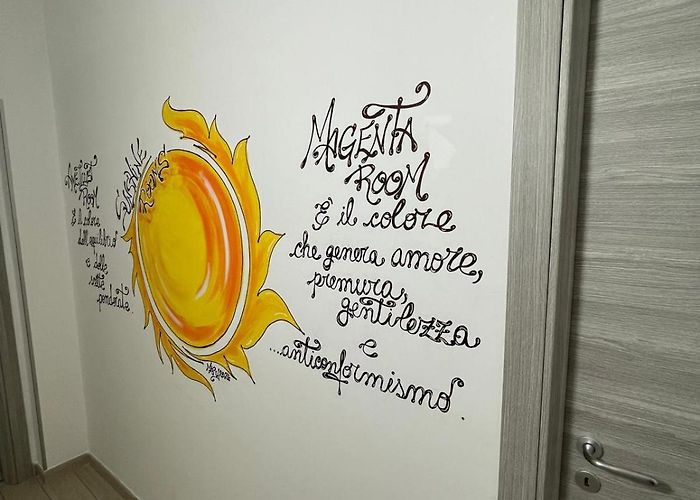 ROOM
È il colore
dell'equilibrio
e delle
scelte
ponderate
SUNSHINE
ROOMS
MAGENTA
ROOM
È il colore
che genera amore,
premura,
gentilezza
e
....anticonformismo.